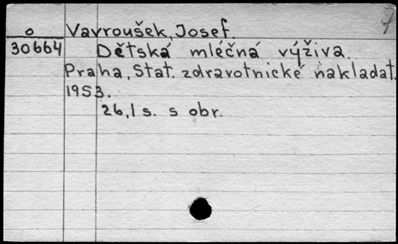 o Vavroušek, Josef.
30664 Dětská mléčná výživa.
Praha, Stát. zdravotnické nakladat.
1953.
26,1 s. s obr.